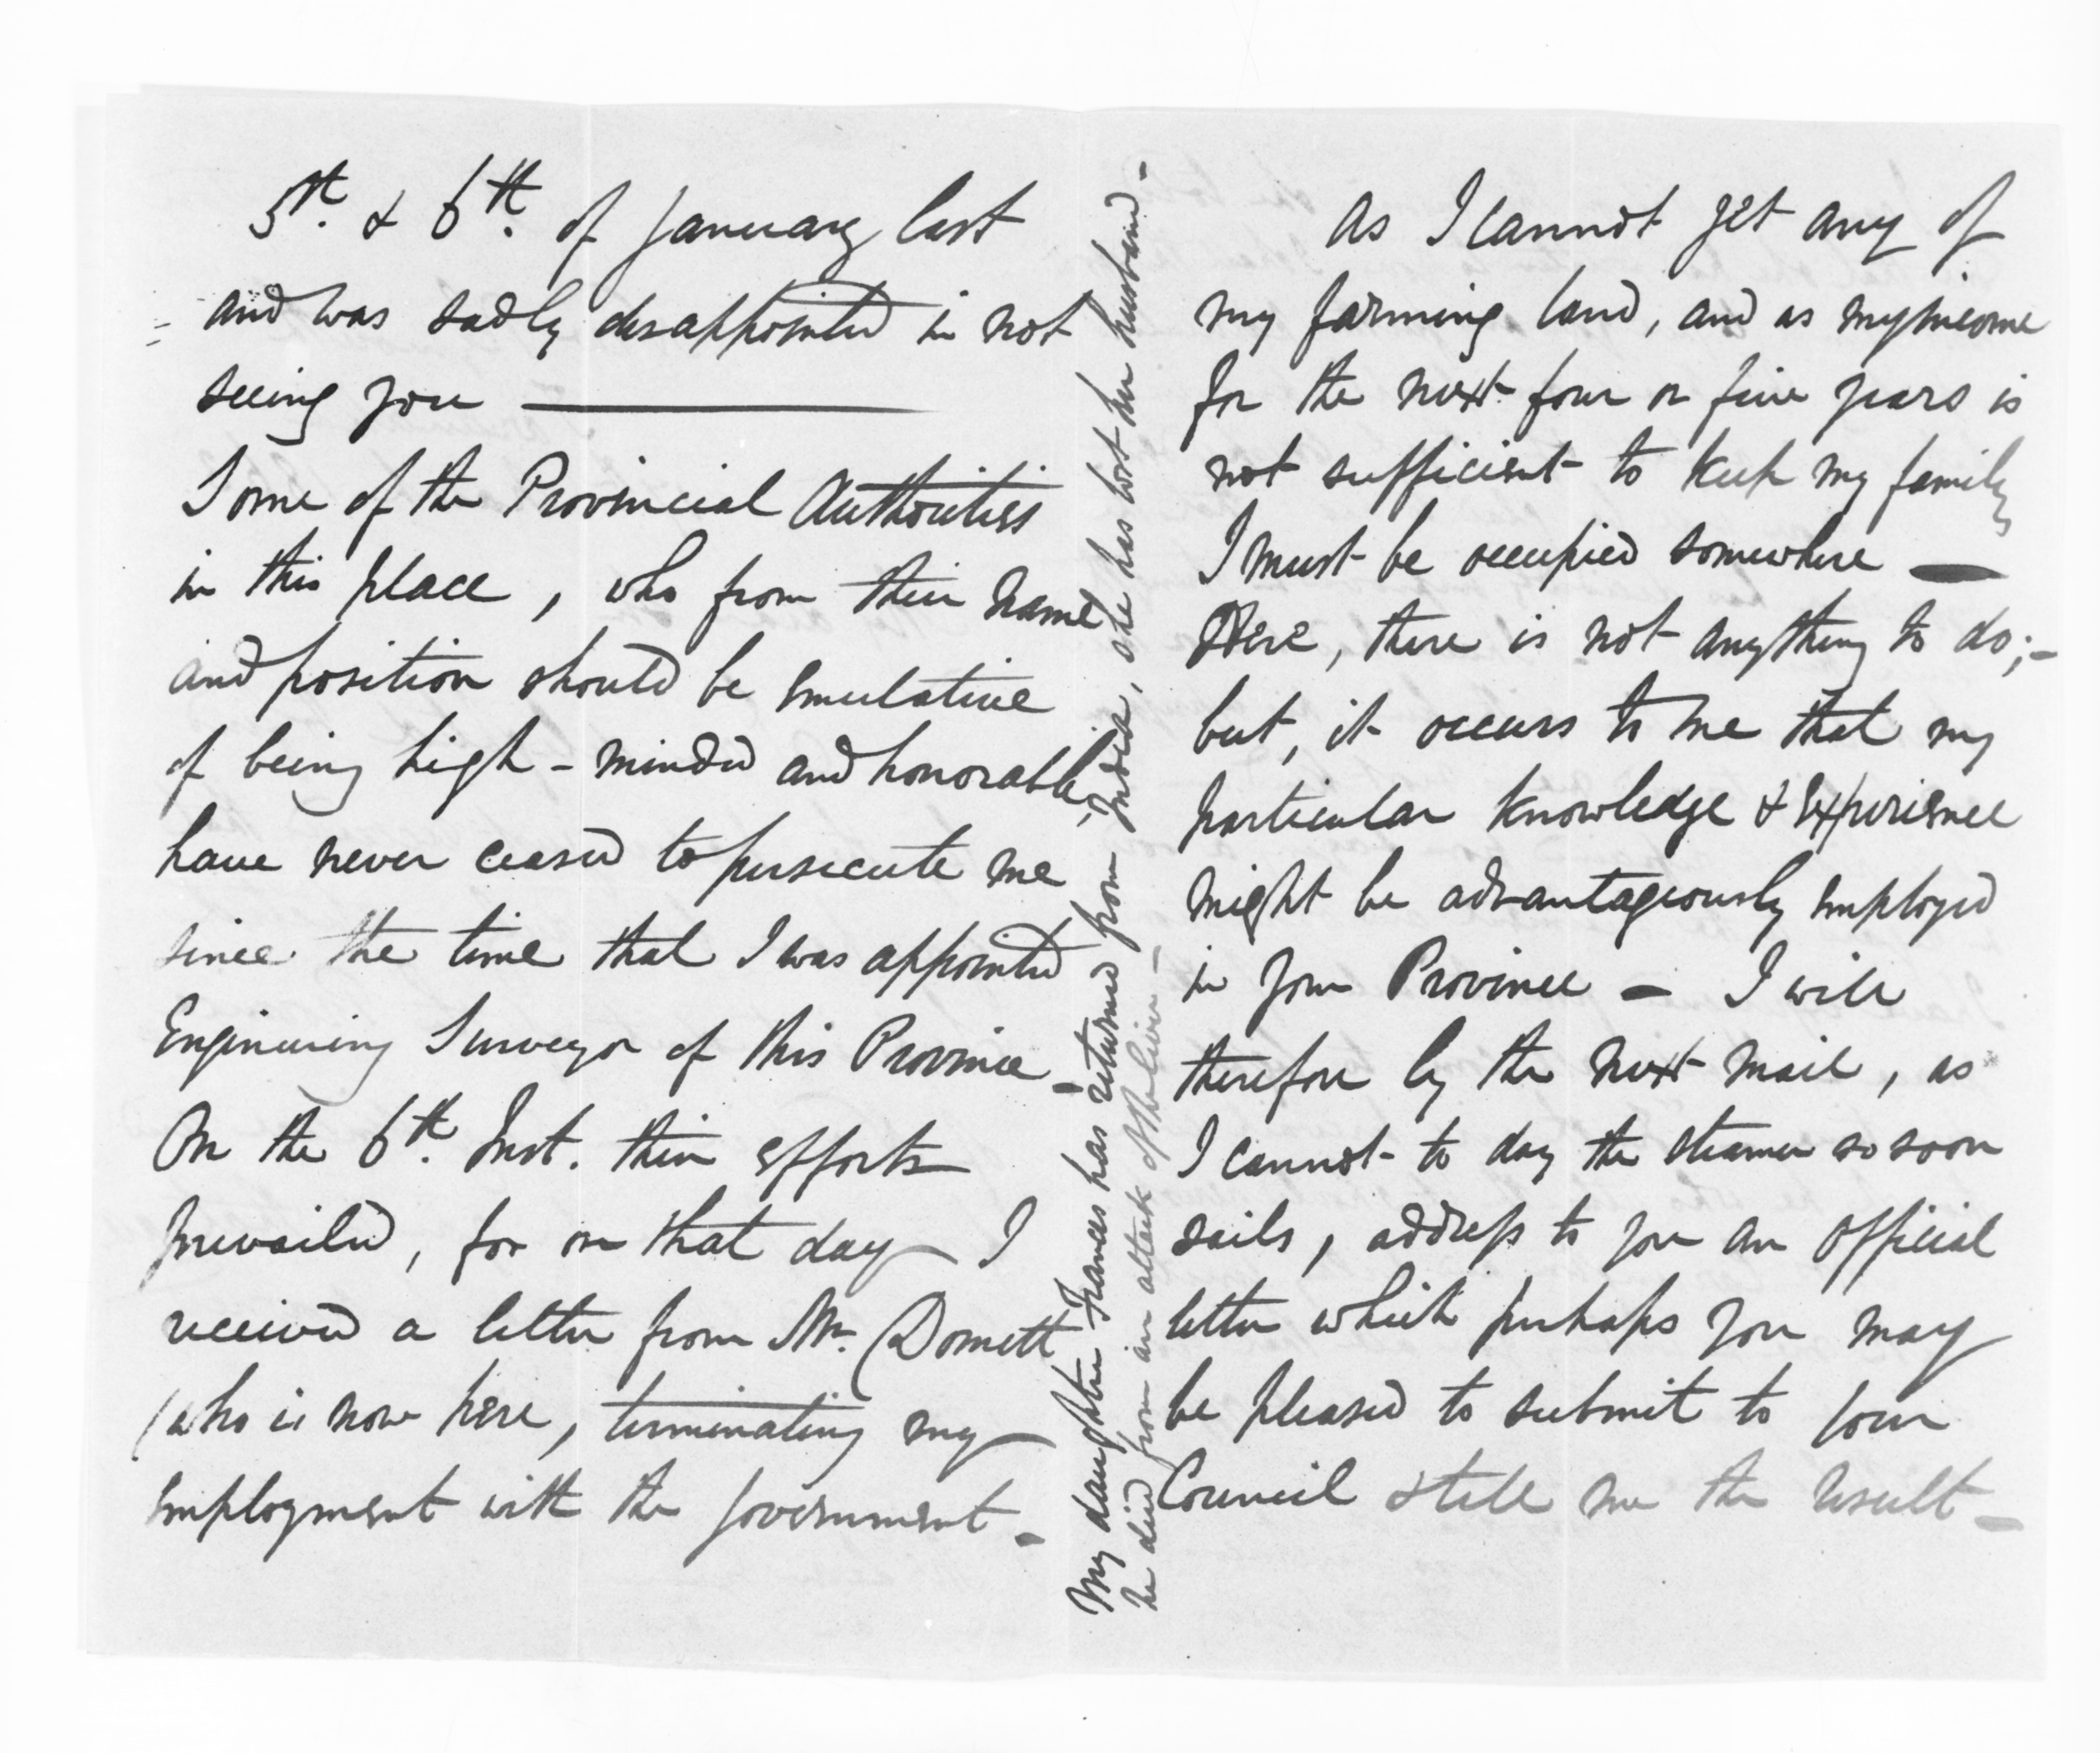 5th. & 6th. of January last
and was sadly disappointed in not
seeing you ———
Some of the Provincial Authorities
in this place, who from their name
and position should be emulative
of being high-minded and honorable,
have never ceased to persecute me
since the time that I was appointed
Engineering Surveyor of this Province –
On the 6th. Inst. their efforts
prevailed, for on that day I
received a letter from Mr. Domett
(who is now here, terminating my
employment with the Government –
My daughter Frances has returned from India, she has lost her husband –
he died from an attack of the liver –
As I cannot get any of
my farming land, and as my income
for the next four or five years is
not sufficient to keep my family
I must be occupied somewhere —
Here, there is not anything to do; –
but, it occurs to me that my
particular knowledge & experience
might be advantageously employed
in your Province – I will
therefore by the next mail, as
I cannot to day the steamer so soon
sails, address to you an official
letter which perhaps you may
be pleased to submit to your
Council & tell me the result –